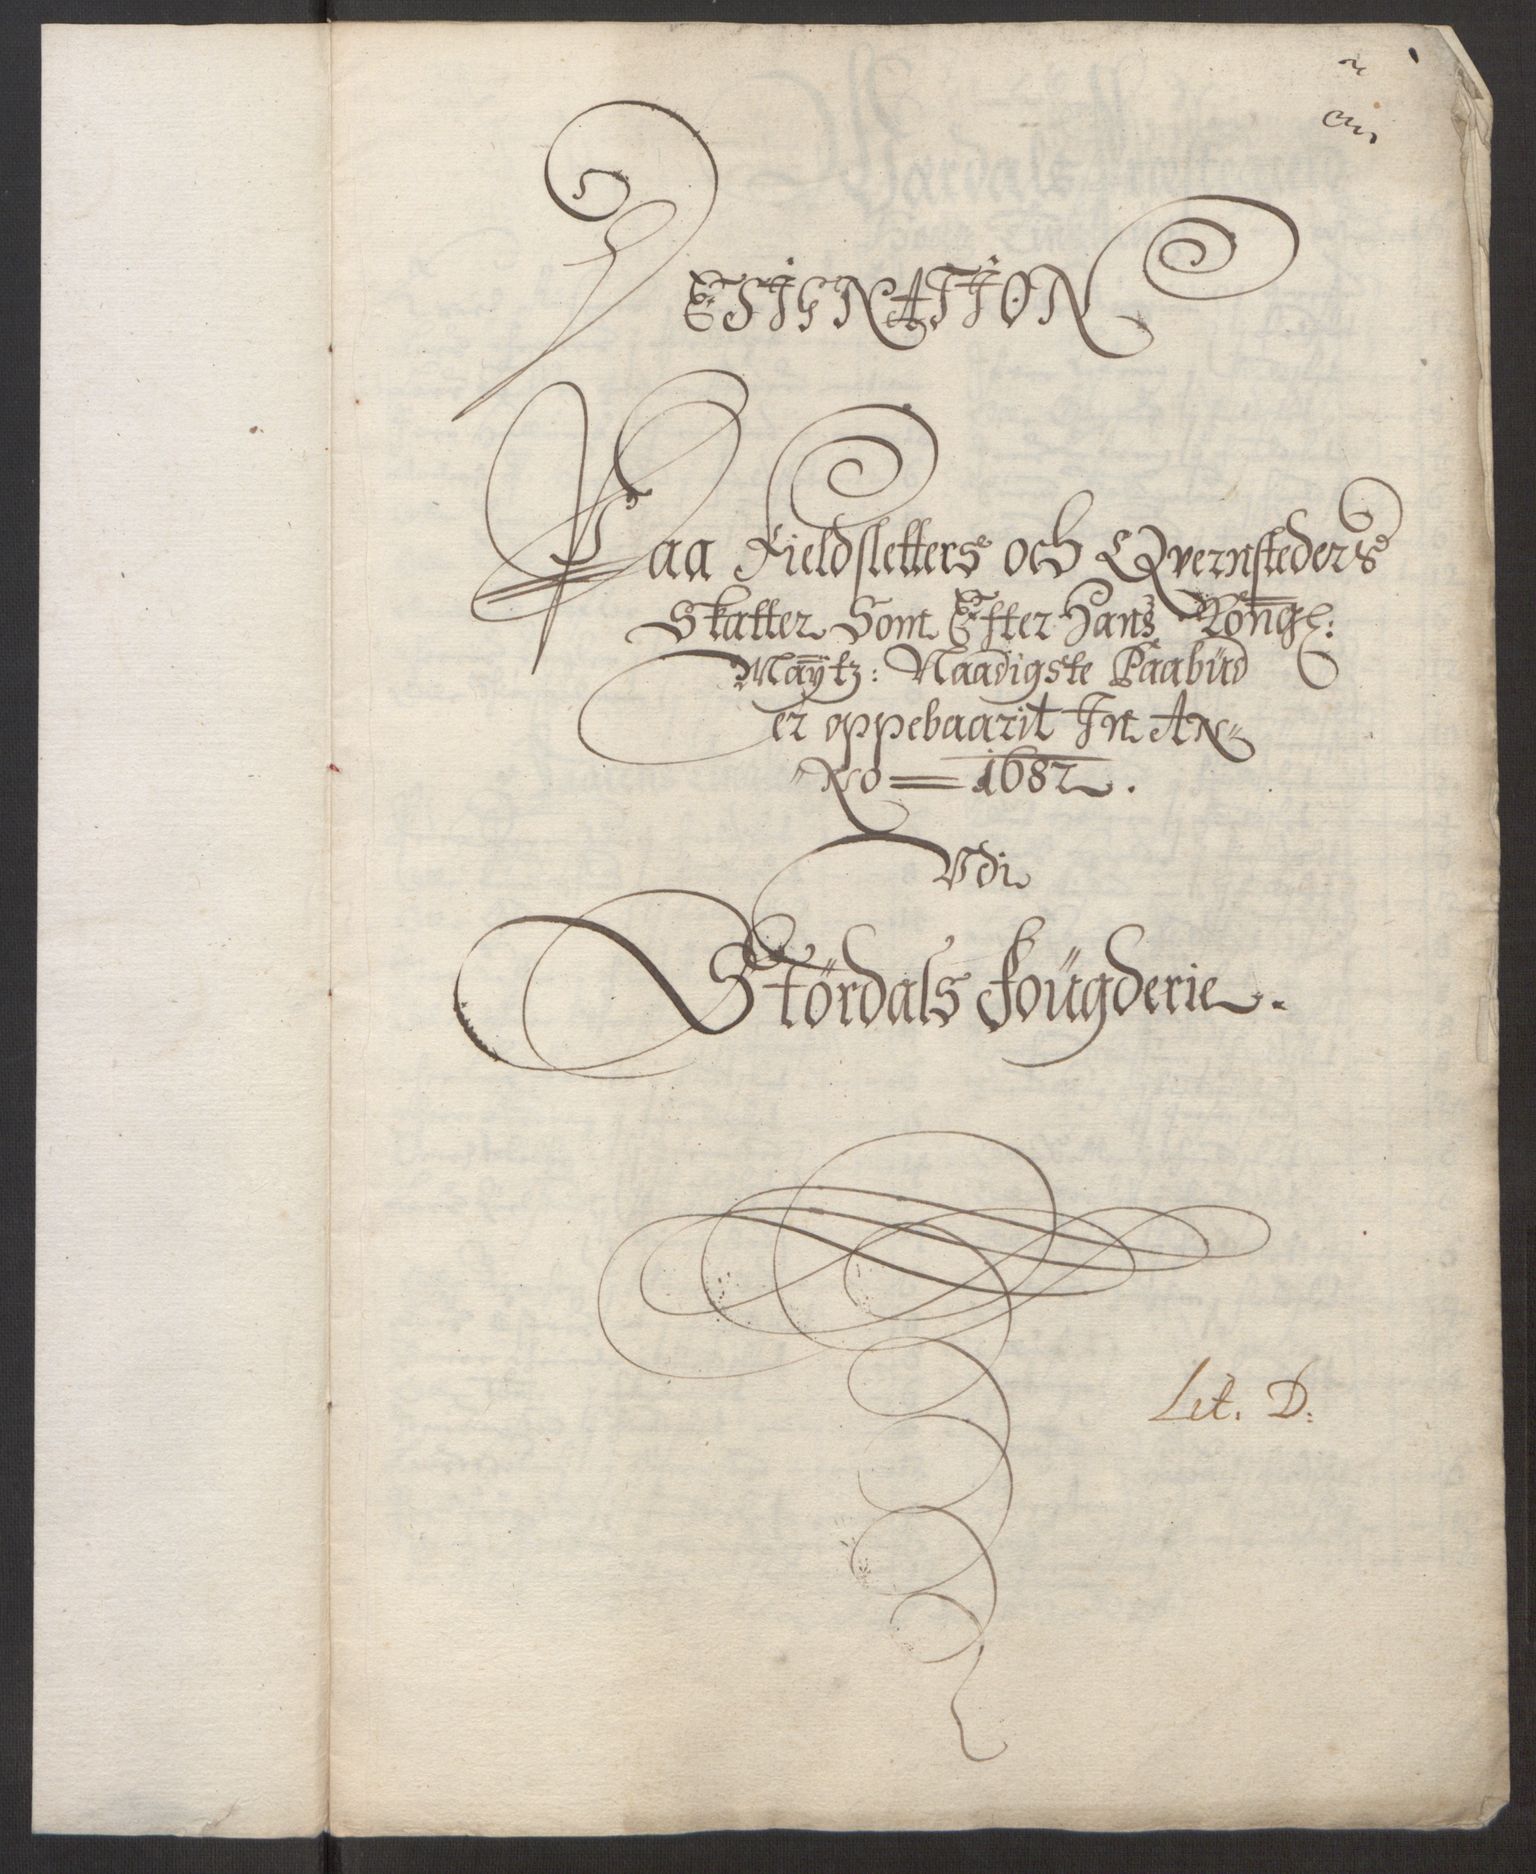 DESIGNATION
Paa Fieldsletters och Qvernsteders
Skatter Som Efter Hans Kongl:
Maÿtz: Naadigste Paabüd
er oppebaarit In AN-
NO = 1682.
Vdi
Stördals Foügderie.
Lit. D: